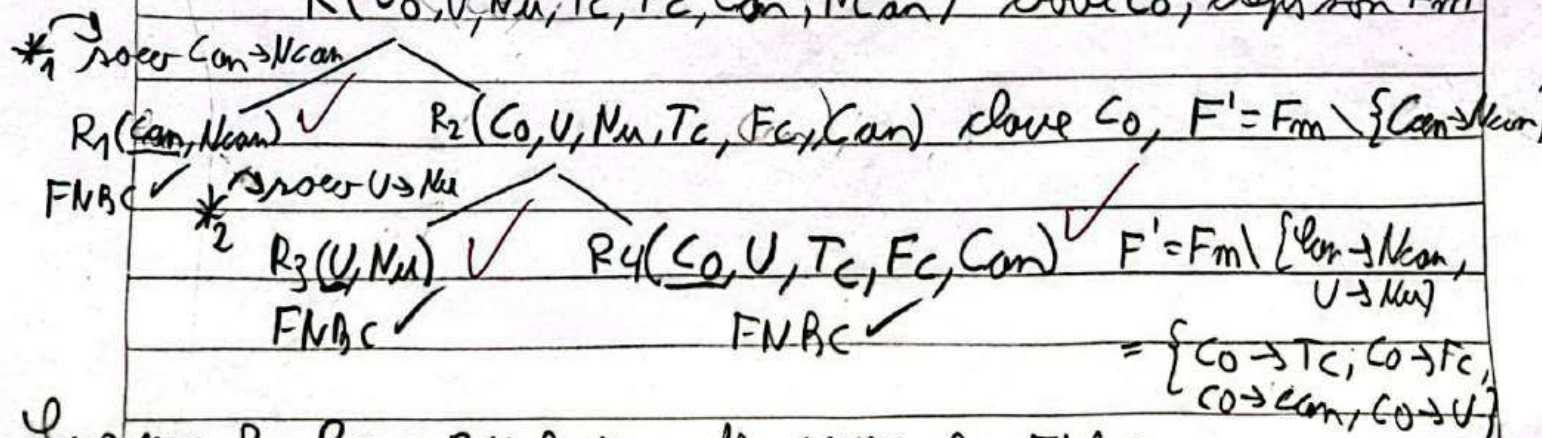 R(Co,U,Nu,Tc,Fc,Can,Ncan) clove Co, deps son Fm
*1 sacar Can→Ncan
R1(Can,Ncan) ✓ R2(Co,U,Nu,Tc,Fc,Can) clave Co, F'=Fm\{Can→Ncan}
FNBC ✓ *2 sacar U→Nu
R3(U,Nu) ✓ R4(Co,U,Tc,Fc,Can) ✓ F'=Fm\{Can→Ncan,
U→Nu}
FNBC ✓ FNBC ✓
= {Co→Tc; Co→Fc,
Co→Can, Co→U}